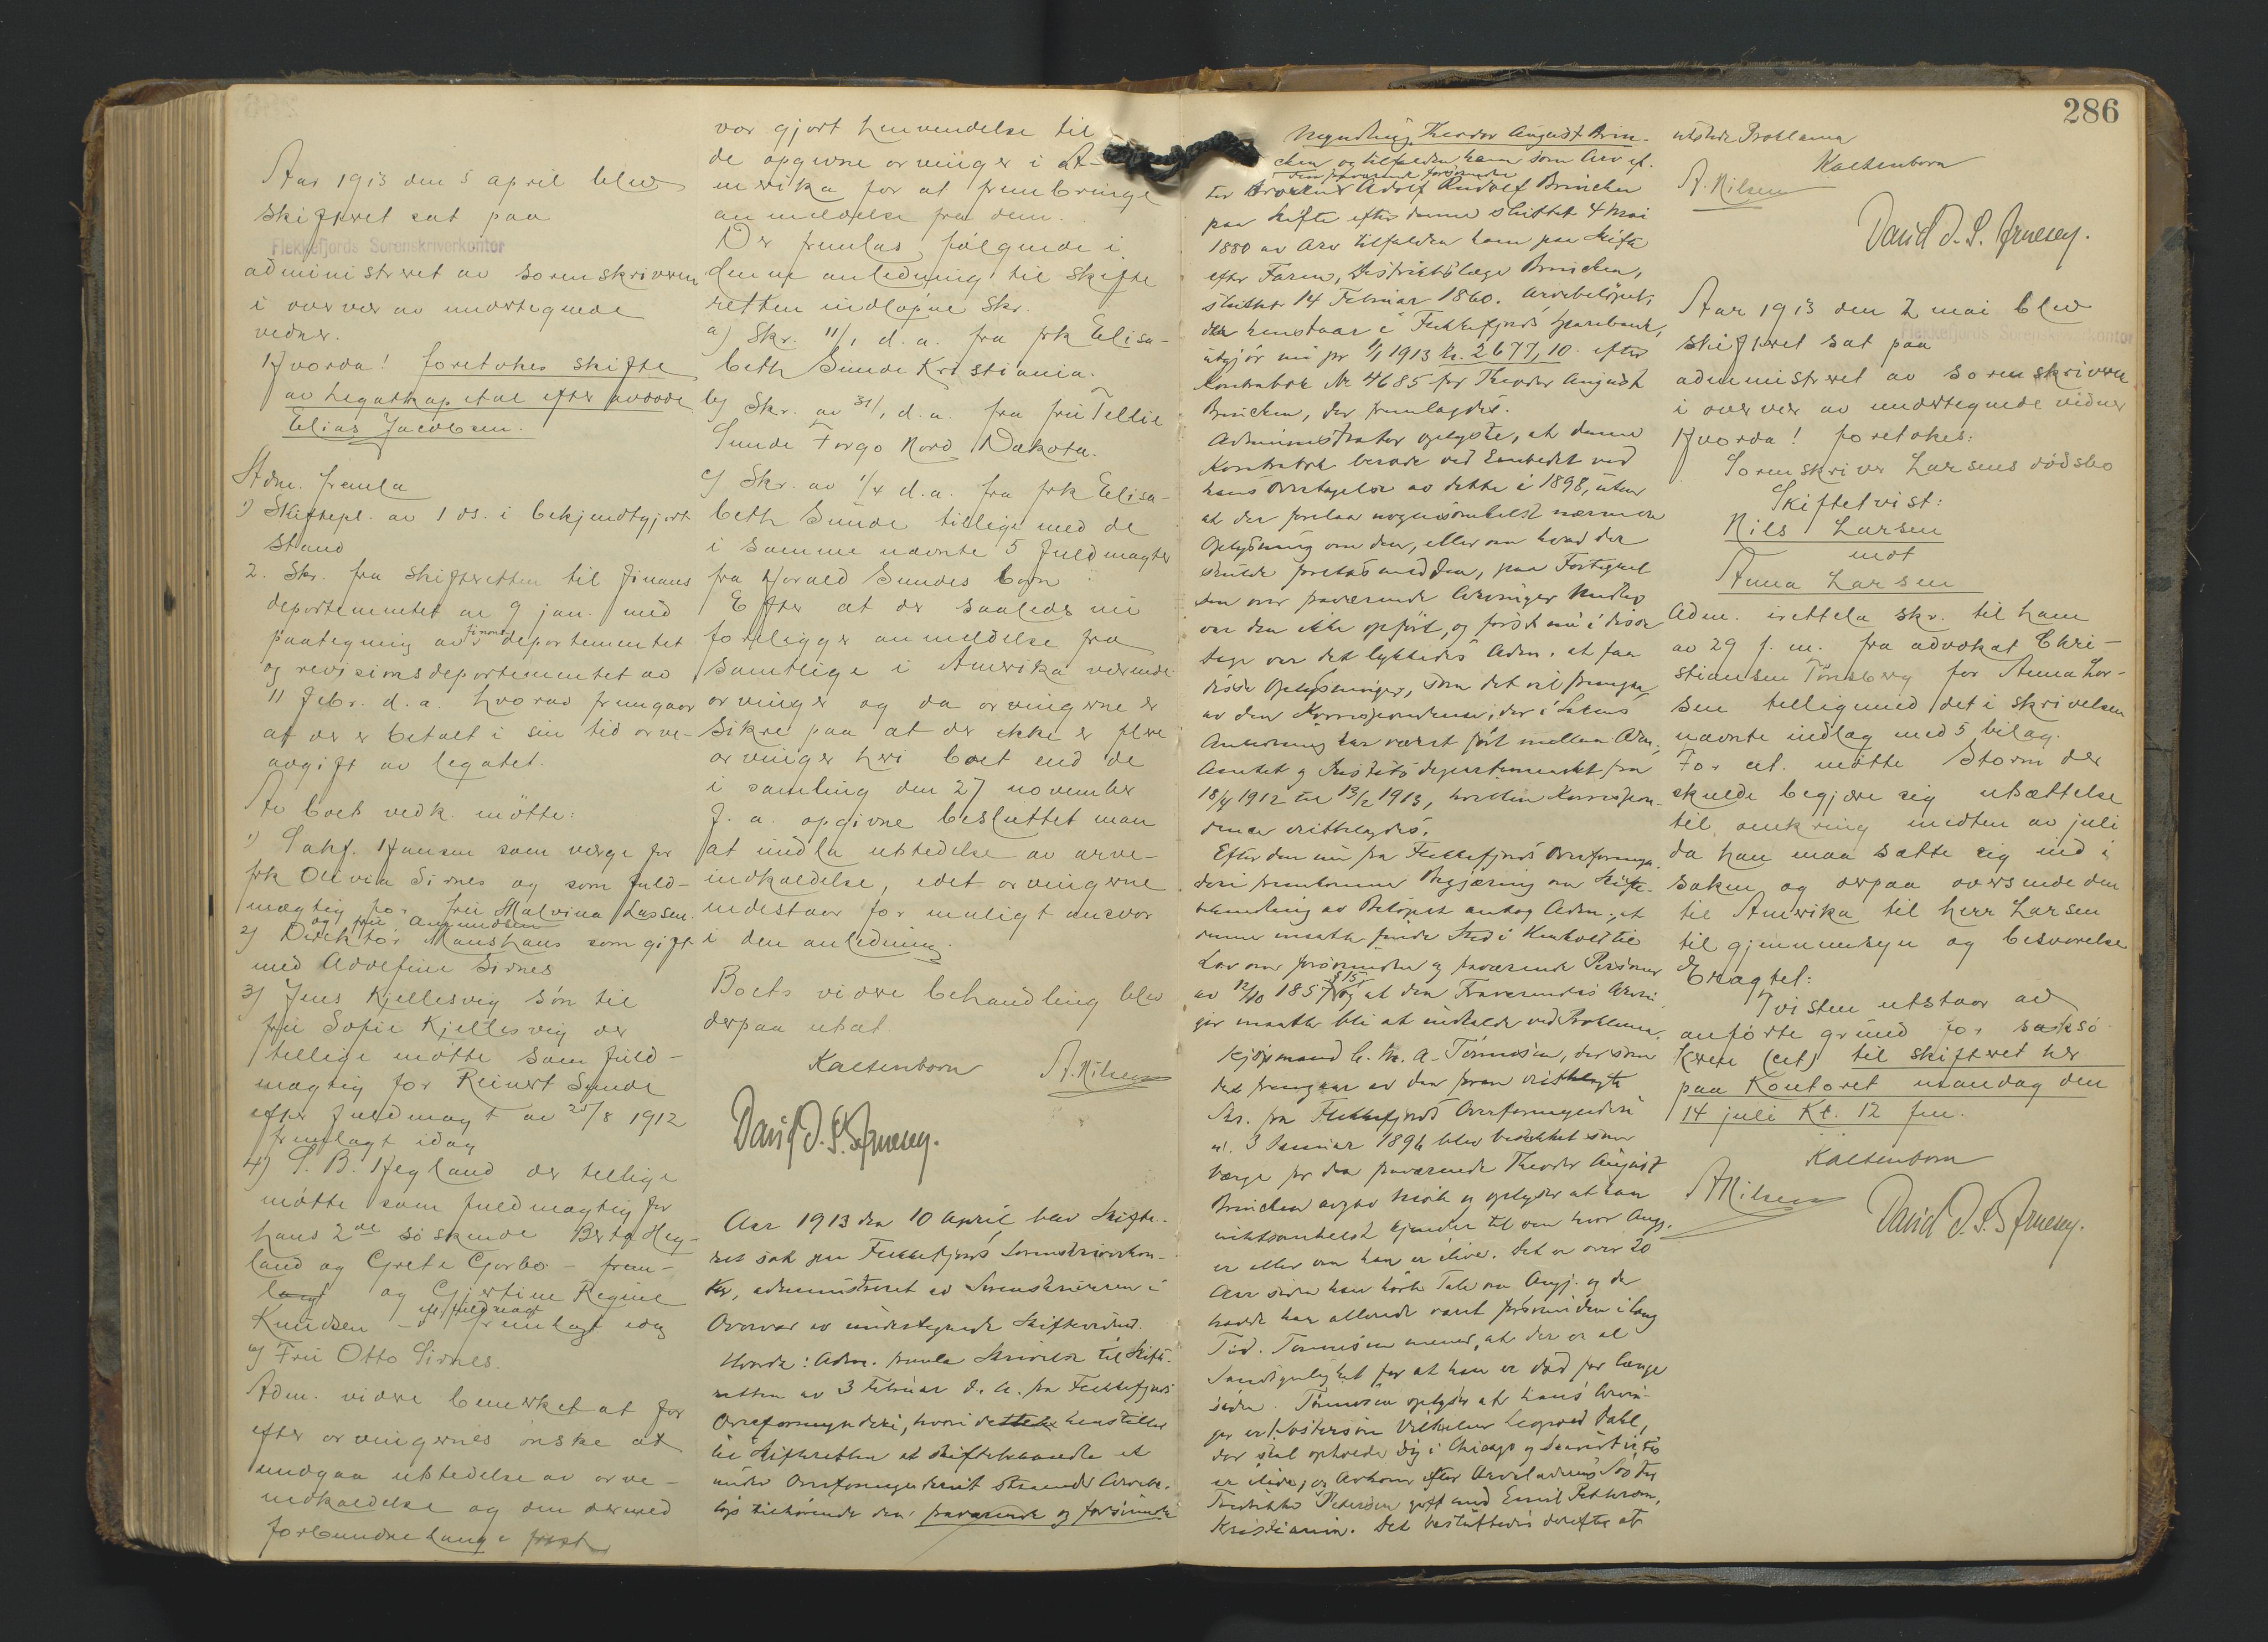 Aar 1913 den 5 april blev
skifteret sat paa
Flekkefjords Sorenskriverkontor
administreret av sorenskriveren
i overvær av undertegnede
vidner.
Hvorda! foretokes skifte
av legatkapital efter avdøde
Elias Jacobsen.
Adm. fremla
1) Skiftepl. av 1 ds. i bekjendtgjort
stand
2. Skr. fra skifteretten til finans
departementet av 9 jan. med
paategning av finansdepartementet
og revisionsdepartementet av
11 febr. d.a. hvorav fremgaar
at der er betalt i sin tid arve-
avgift av legatet.
Av boets vedk. møtte:
1) Sakf. Hansen som værge for
frk Olivia Sirnes og som fuld-
mægtig for fru Malvina Lassen
og fru Amundsen
2) Direktør Manshaus som gift
med Adolfine Sirnes
3) Jens Kjellesvig søn til
fru Sofie Kjellesvig der
tillige møtte som fuld-
mægtig for Reinert Sunde
efter fuldmagt av 25/8 1912
fremlagt idag
4) S. B. Hegland der tillige
møtte som fuldmægtig for
hans 2de søskende Berta Heg-
land og Grete Gorbo - frem-
lagt og Gjertine Regine
Knudsen - efter fuldmagt fremlagt idag
5) Fru Otto Sirnes.
Adm. videre bemerket at for
efter arvingernes ønske at
undgaa utstedelse av arve-
indkaldelse og den dermed
forbundne lange frist
var gjort henvendelse til
de opgivne arvinger i A-
merika for at frembringe
anmeldelse fra dem.
Der fremlas følgende i
denne anledning til skifte
retten indløpne skr.
a) Skr. 11/1 d.a. fra frk Elisa-
beth Sunde Kristiania.
b) Skr. av 31/1 d.a. fra fru Tellie
Sunde Fargo Nord Dakota.
c) Skr. av 1/4 d.a. fra frk Elisa-
beth Sunde tillige med de
i samme nævnte 5 fuldmagter
fra Harald Sundes barn
Efter at der saaledes nu
foreligger anmeldelse fra
samtlige i Amerika værende
arvinger og da arvingerne er
sikre paa at der ikke er flere
arvinger heri boet end de
i samling den 27 november
f.a. opgivne besluttet man
at undla utstedelse av arve-
indkaldelse, idet arvingerne
indestaar for muligt ansvar
i den anledning.
Boets videre behandling blev
derpaa utsat
Kaltenborn
A. Nilsen
David D. S. Arnesen.
Aar 1913 den 10 April, blev Skifte-
ret sat paa Flekkefjords Sorenskriverkon-
tor, administreret av Sorenskriveren i
Overvær av undertegnede Skiftevidner.
Hvorda: Adm. fremla Skrivelse til Skifte-
retten av 3 Februar d. A. fra Flekkefjords
Overformynderi, hvori dette henstiller
til Skifteretten at skiftebehandle et
under Overformynderiet staaende Arvebe-
løp tilhørende den fraværende og forsvundne
286
Myndling Theodor August Brin-
cken og tilfalden ham som Arv ef-
ter Broderen den fraværende forsvundne Adolf Rudolf Brincken
paa Skifte efter denne sluttet 4 Mai
1880 av Arv tilfalden ham paa Skifte
efter Faren, Distriktslæge Brincken,
sluttet 14 Februar 1860. Arvebeløpet,
der henstaar i Flekkefjords Sparebank,
utgjør nu pr 1/1 1913 Kr. 2677,10 efter
Kontrabok Nr 4685 for Theodor August
Brincken, der fremlagdes.
Administrator oplyste, at denne
Kontrabok beroede ved Embedet ved
hans Overtagelse av dette i 1898, uten
at der forelaa nogensomhelst nærmere
Oplysning om den, eller om hvad der
skulde foretas med den, paa Fortegnel
sen over fraværende Arvingers Midler
var den ikke opført, og først nu i disse
Dage var det lykkedes Adm. at faa
disse Oplysninger, som det vil fremgaa
av den Korrespondence, der i Sakens
Anledning har været ført mellem Adm,
Amtet og Justitsdepartementet fra
18/4 1912 til 13/2 1913, hvilken Korrespon-
dence irettelagdes.
Efter den nu fra Flekkefjords Overformyn-
deri fremkomne Begjæring om Skifte-
behandling av Beløpet antog Adm, at
denne maatte finde Sted i Henhold til
Lov om forsvundne og fraværende Personer
av 12/10 1857 § 15 og at den Fraværendes Arvin-
ger maatte bli at indkalde ved Proklama.
Kjøpmand C. M. A. Tønnesen, der som
det fremgaar av den foran irettelagte
Skr. fra Flekkefjords Overformynderi
av 3 Januar 1896 blev beskikket som
Værge for den fraværende Theodor August
Brincken avgav Møte og oplyste at han
intetsomhelst kjender til om hvor Angj.
er eller om han er ilive. Det er over 20
Aar siden han hørte Tale om Angj. og da
havde han allerede været forsvunden i lang
Tid. Tønnesen mener, at der er al
Sandsynlighet for at han er død for længe
siden. Tønnesen oplyste at hans Arvin-
ger er Søstersøn Vilhelm Leopold Dahl,
der skal opholde sig i Chicago og saavidt vites
er ilive, og Avkom efter Arveladerens Søster
Fredrikke Petersen gift med Emil Petersen,
Kristiania. Det besluttedes derefter at
utstede Proklama
Kaltenborn
A. Nilsen
David D. S. Arnesen.
Aar 1913 den 2 mai blev
Flekkefjords Sorenskriverkontor
skifteret sat paa
administreret av sorenskriveren
i overvær av undertegnede vidner
Hvorda! foretokes:
Sorenskriver Larsens dødsbo
Skiftetvist:
Nils Larsen
mot
Anna Larsen
Adm. irettela skr. til ham
av 29 f. m. fra advokat Chri-
stiansen Tønsberg for Anna Lar-
sen tilligemed det i skrivelsen
nævnte indlag med 5 bilag.
For cit. møtte Storm der
skulde begjære sig utsættelse
til omkring midten av juli
da han maa sætte sig ind i
saken og derpaa oversende den
til Amerika til herr Larsen
til gjennemsyn og besvarelse
Eragtet:
Tvisten utstaar av
anførte grund for saksø
keren (cit) til skifteret her
paa Kontoret mandag den
14 juli Kl. 12 fm.
Kaltenborn
A Nilsen
David D. S. Arnesen.